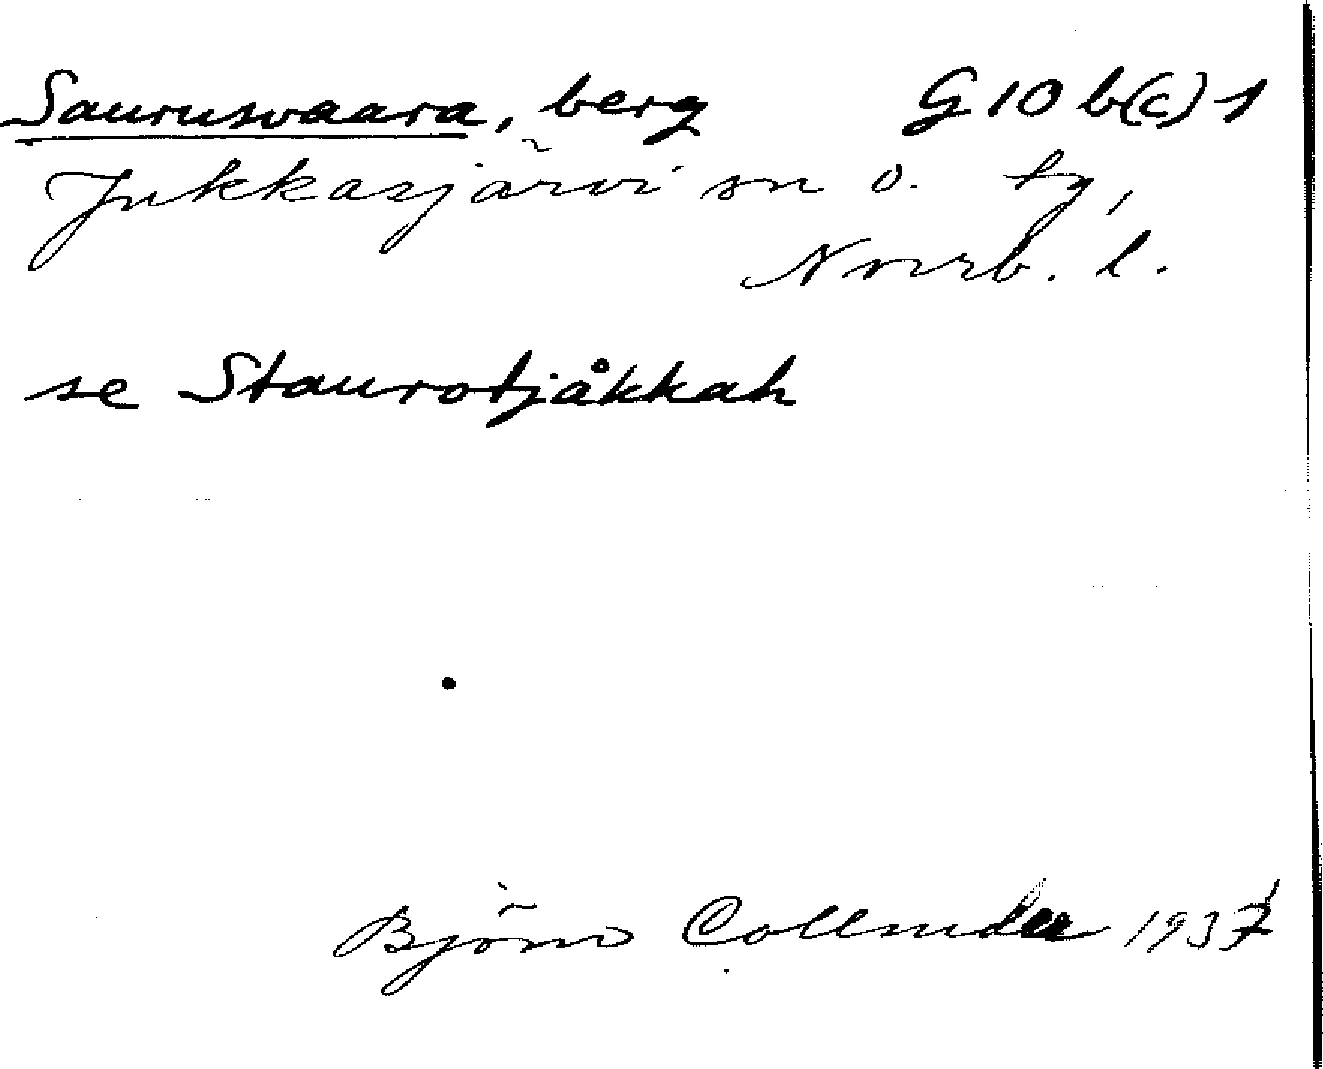 Saurusvaara, berg G 10 b(c) 1
Jukkasjärvi sn o. tg,
Norrb. l.
se Staurotjåkkah
Björn Collinder 1937